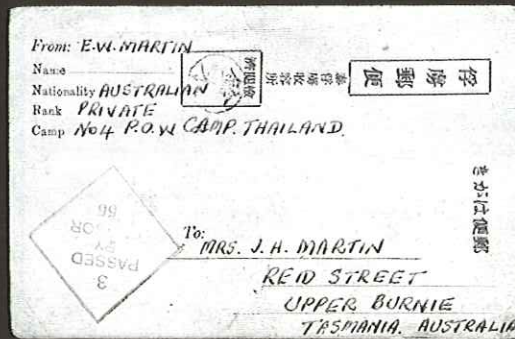 From: E.W. MARTIN
Name
Nationality AUSTRALIAN
Rank PRIVATE
Camp No 4 P.O.W CAMP. THAILAND.
俘虜郵便
郵便はがき
3
PASSED
BY
To:
MRS. J. H. MARTIN
REID STREET
UPPER BURNIE
TASMANIA. AUSTRALIA